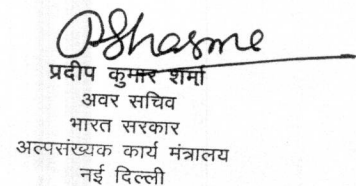 PSharme
प्रदीप कुमार शर्मा
अवर सचिव
भारत सरकार
अल्पसंख्यक कार्य मंत्रालय
नई दिल्ली